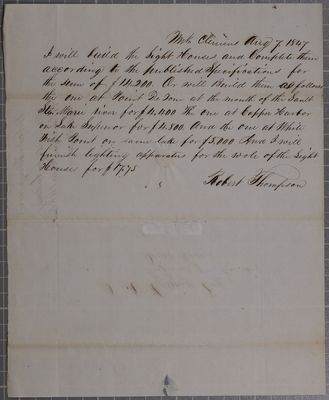 Mt Clemens Aug 7, 1847
I will build the Light Houses and Complete them
according to the published Specifications for
the Sum of $14,200. Or will Build them as follows
the one at Point De Tour at the mouth of the Sault
Ste Marie river for $4,400 The one at Copper Harbor
on Lake Superior for $4,800 And the one at White
Fish Point on same lake for $5,000 And I will
furnish lighting apparatus for the wole of the Light
Houses for $
Robert Thompson